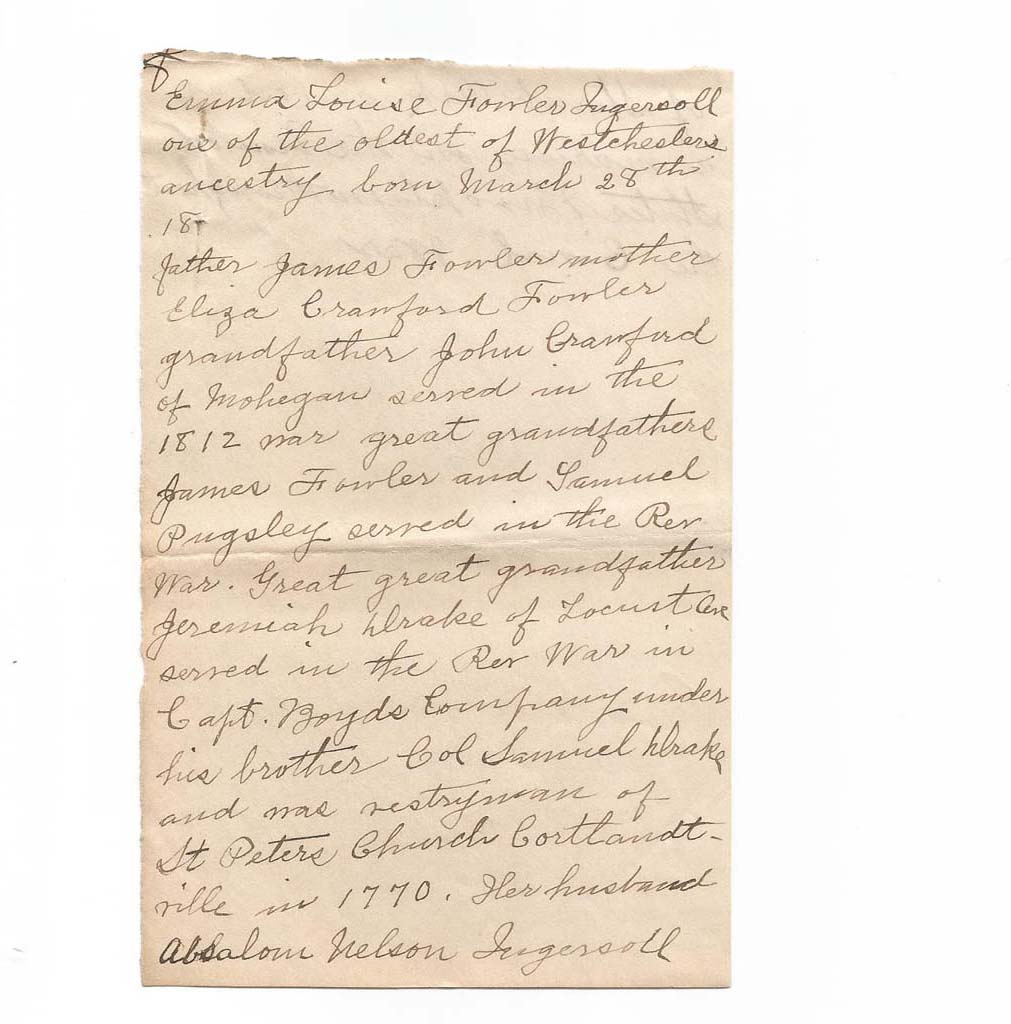 Emma Louise Fowler Ingersoll
one of the oldest of Westchesters
ancestry born March 28th
18-
father James Fowler mother
Eliza Crawford Fowler
grandfather John Crawford
of Mohegan served in the
1812 war great grandfathers
James Fowler and Samuel
Pugsley served in the Rev
War. Great great grandfather
Jeremiah Drake of Locust Ave
served in the Rev War in
Capt. Boyds Company under
his brother Col Samuel Drake
and was vestryman of
St Peters Church Cortlandt-
ville in 1770. Her husband
Absalom Nelson Ingersoll